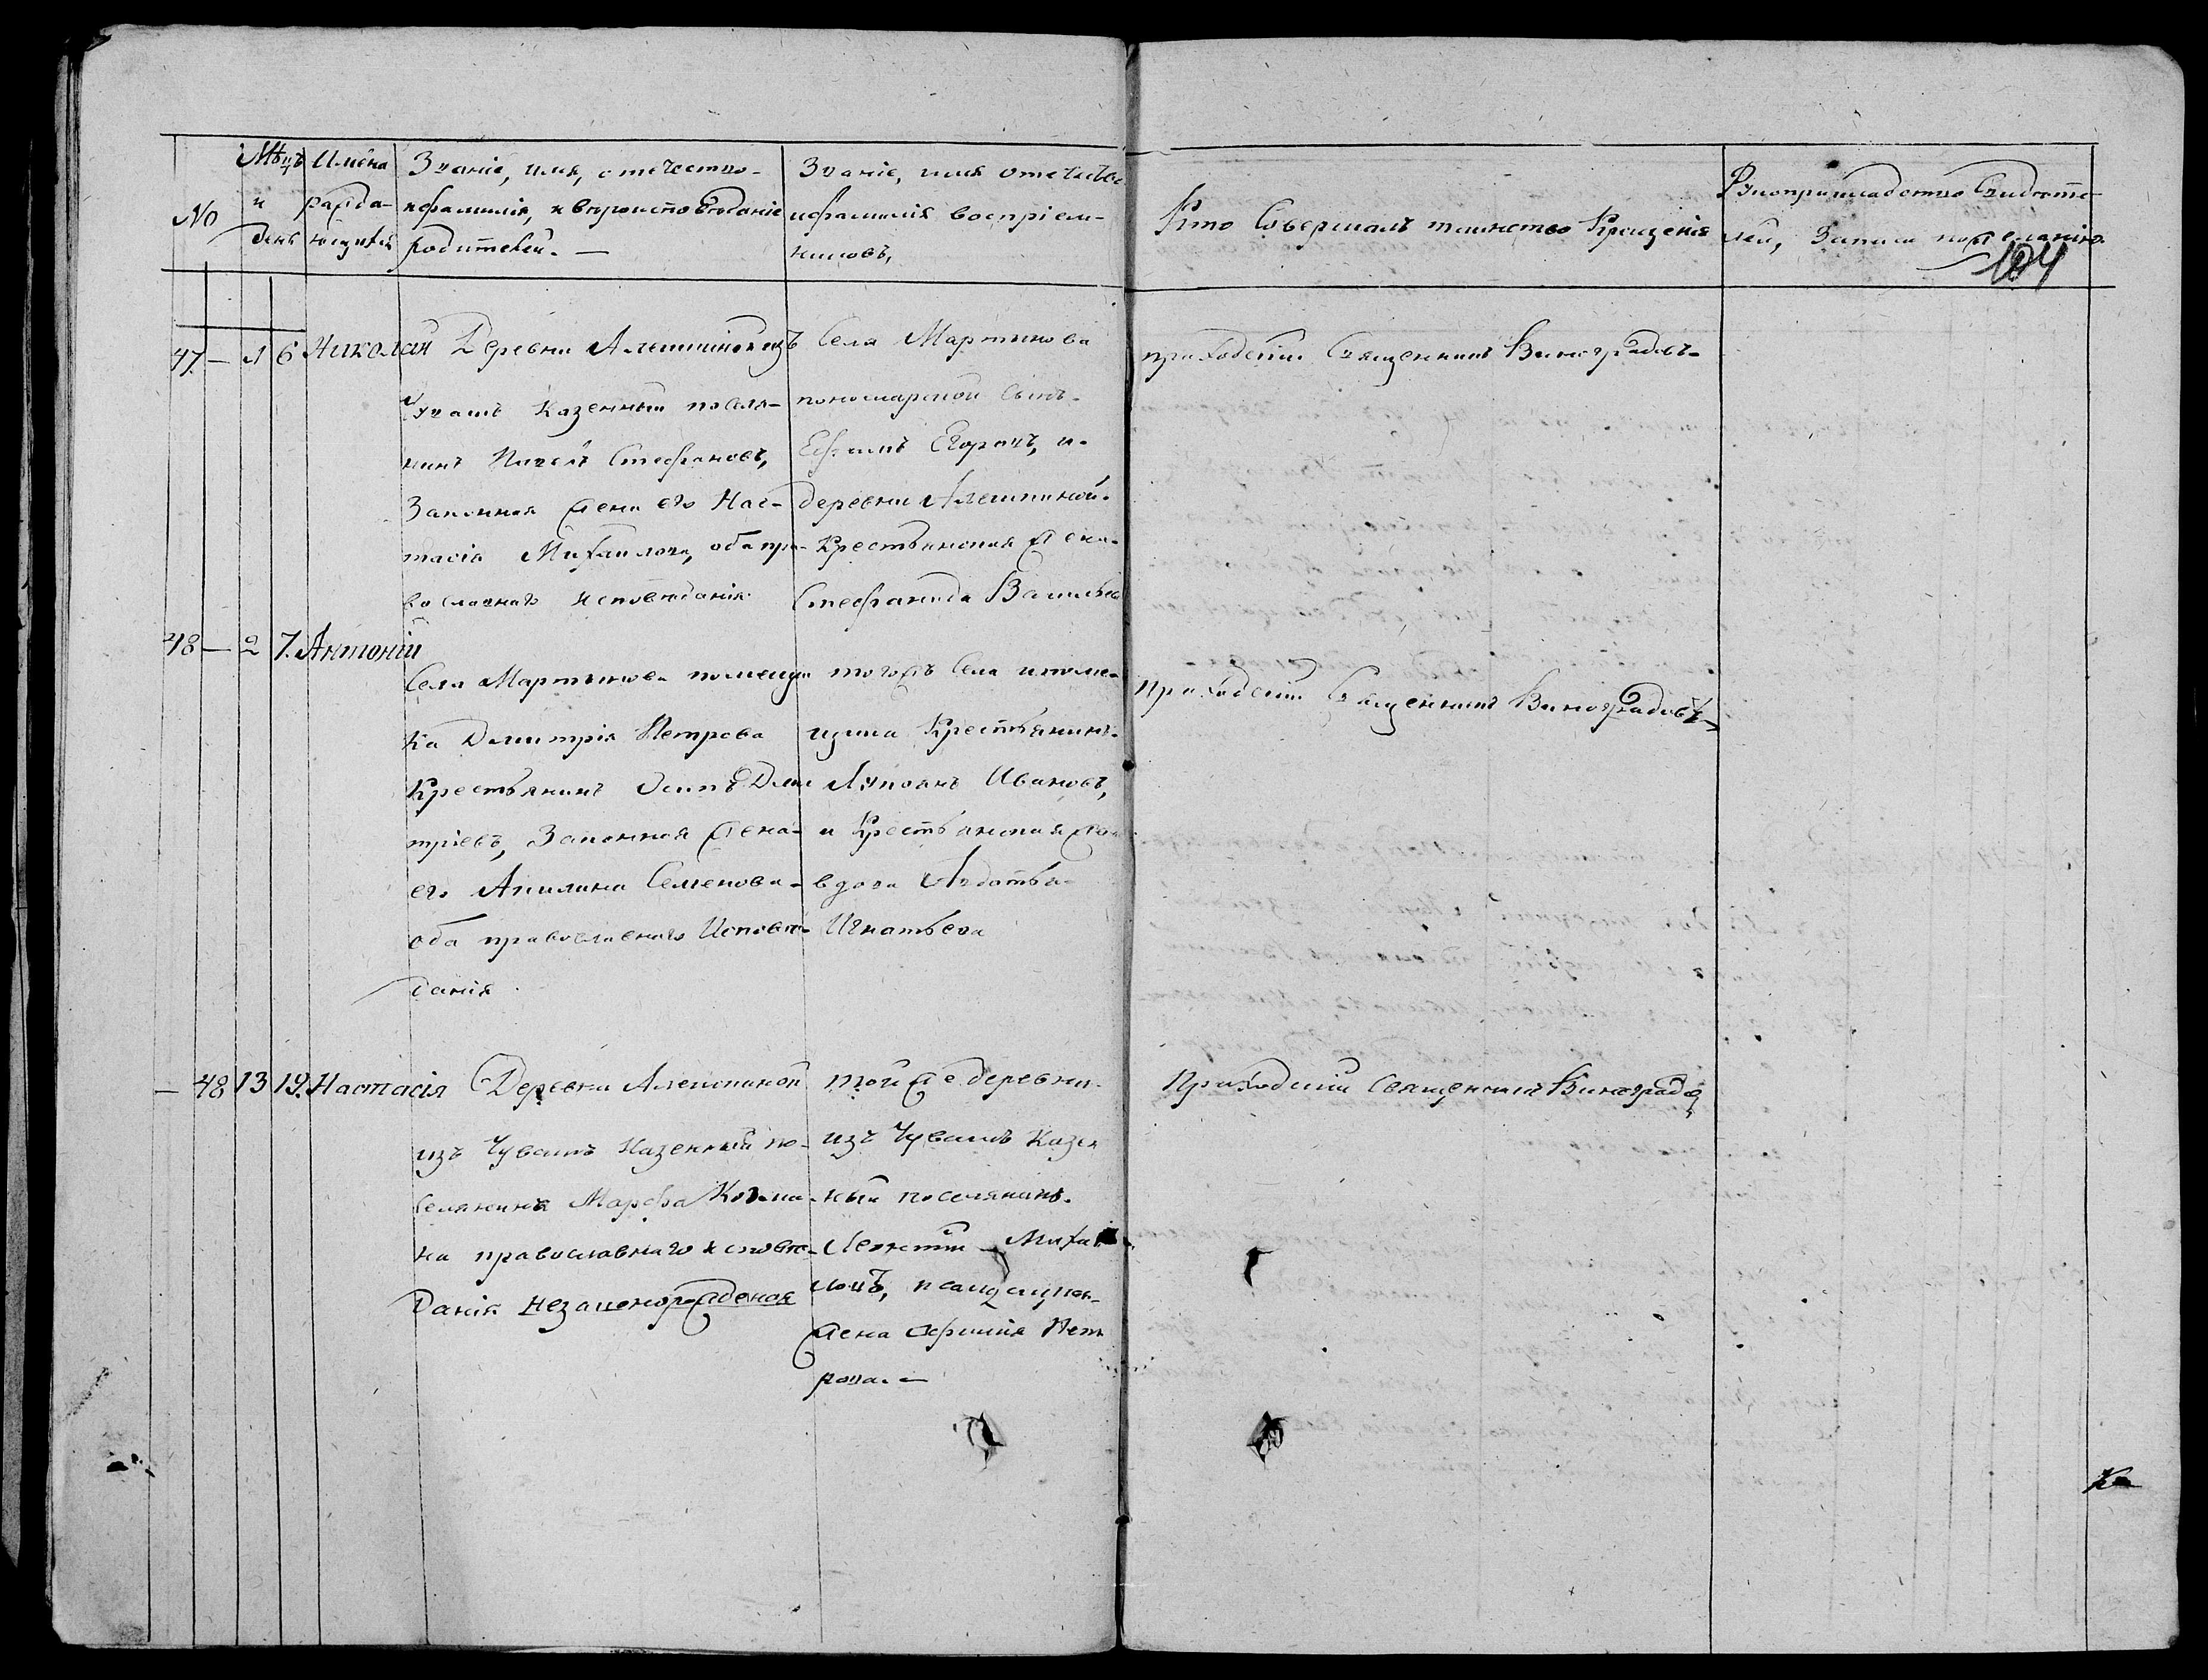 №
Мѣцъ
и
день
Имена
ражда-
ющихся
Званіе, имя, отечество-
и фамилія, и вѣроисповѣданіе
родителей. —
Званіе, имя отечество
и фамилія воспріем-
никовъ,
Кто Совершалъ таинство Крещенія
Рукоприкладство Свидѣте-
лей, Записи по желанію.
104
47 — 1 6 Николай
Деревни Алешкиной изъ
Чувашъ Казенный поселя-
нинъ Павелъ Стефановъ,
Законная жена его Нас-
тасія Михайлова, оба пра-
вославнаго исповѣданія
Села Мартынова
пономарской сынъ.
Ефимъ Егоровъ, и.
деревни Алешкиной.
Крестьянская жена.
Стефанида Васильева
приходскій Священникъ Виноградовъ.
48 — 2 7. Антоній
Села Мартынова помещи
ка Дмитрія Петрова
Крестьянинъ Осипъ Дми
тріевъ, Законная жена-
его Акилина Семенова-
оба православнаго Исповѣ-
данія
тогожъ Села и поме-
щика Крестьянинъ.
Лукоянъ Ивановъ,
и Крестьянская
вдова Авдотья-
Игнатьева
приходскій Священникъ Виноградовъ
— 48 13 19. Настасія
Деревни Алешкиной
изъ Чувашъ Казенный по-
селянинъ Марфа Козми-
на православнаго исповѣ-
данія незаконорожденая
той же деревни.
изъ Чувашъ Казен
ный поселянинъ.
Леонтій Михай
ловъ,
жена Пет
рова. —
Приходскій Священникъ Виноградовъ